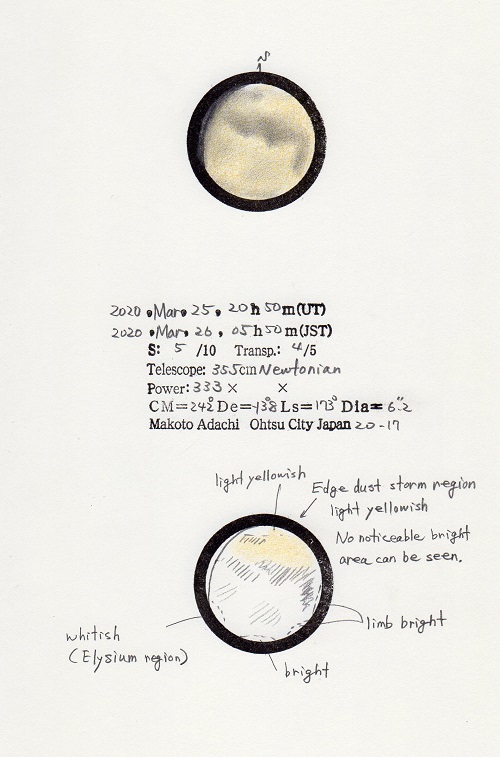 N
2020.Mar. 25, 20h 50m(UT)
2020.Mar. 26, 05h 50m(JST)
S: 5 /10 Transp.: 4/5
Telescope: 355cm Newtonian
Power: 333 × ×
CM=242° De=-13°8 Ls=173° Dia=6"2
Makoto Adachi Ohtsu City Japan 20-17
light yellowish
Edge dust storm region
light yellowish
No noticeable bright
area can be seen.
limb bright
whitish
(Elysium region)
bright